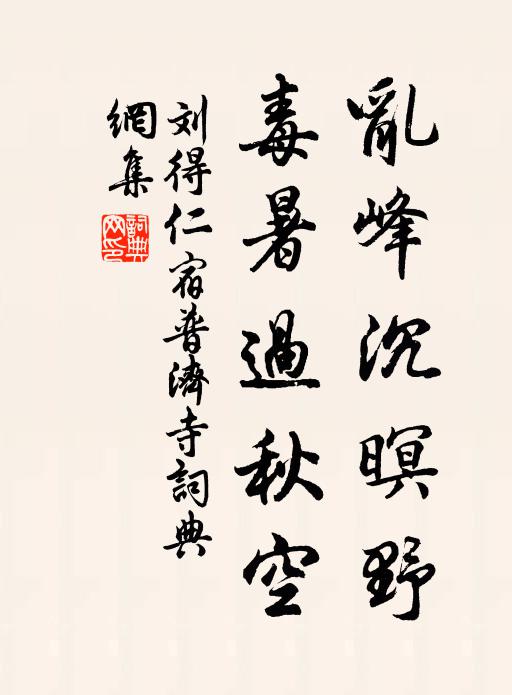 亂峰沉暝野
毒暑過秋空
刘得仁宿普濟寺詞典
網集
詞典網印